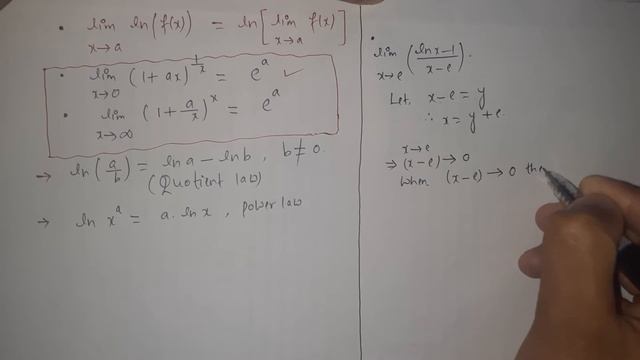 • lim ln(f(x)) = ln[lim f(x)]
x→a x→a
• lim (1+ax)^(1/x) = e^a ✓
x→0
• lim (1+a/x)^x = e^a
x→∞
→ ln(a/b) = ln a − ln b, b≠0.
(Quotient law)
→ ln x^a = a. ln x, power law
• lim ((ln x−1)/(x−e)).
x→e
Let, x−e = y
∴ x = y+e.
x→e
⇒ (x−e)→0
when (x−e)→0 then